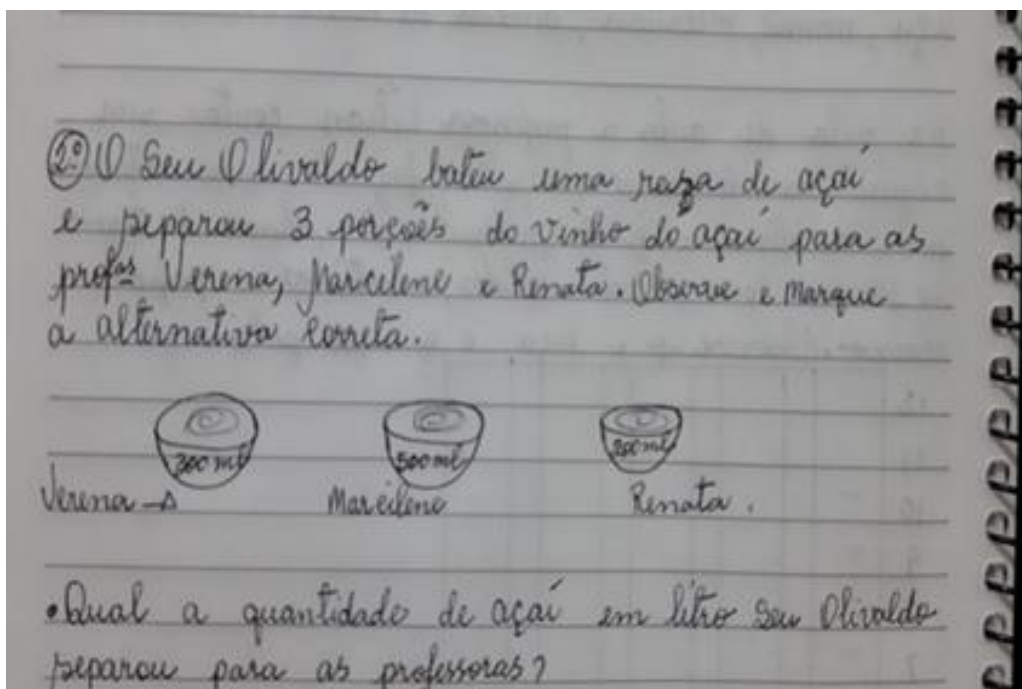 2º O Seu Olivaldo bateu uma raza de açaí
e separou 3 porções do vinho do açaí para as
profªs Verena, Marcilene e Renata. Observe e Marque
a alternativa correta.
300 ml 500 ml 200 ml
Verena → Marcilene Renata.
• Qual a quantidade de açaí em litro seu Olivaldo
separou para as professoras?